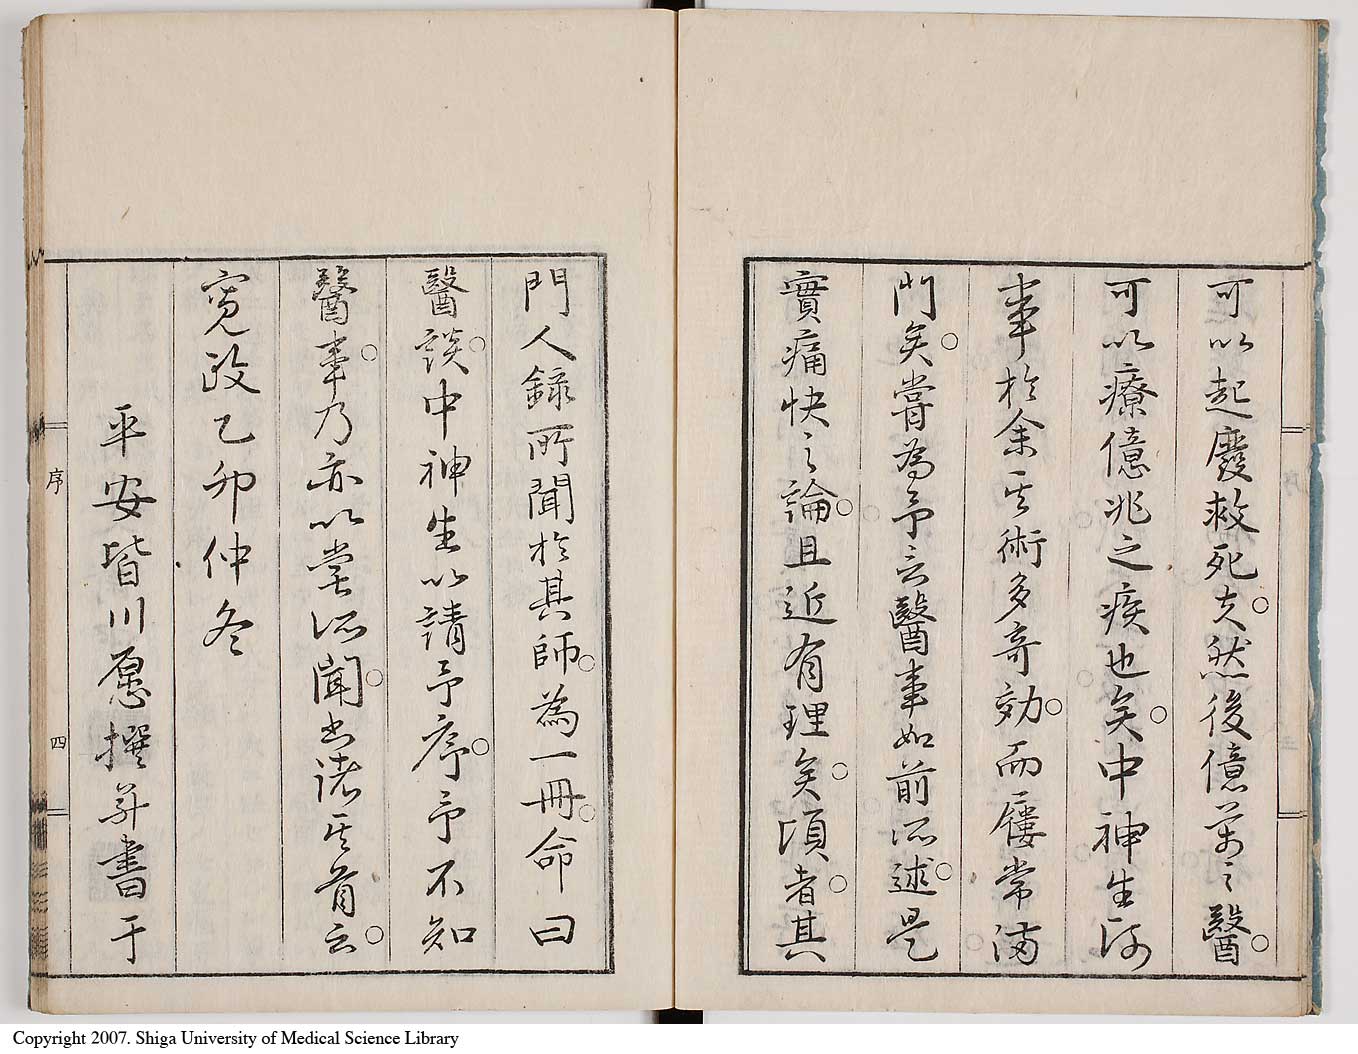 可以起廢救死夫然後億萬之醫
可以療億兆之疾也矣中神生從
事於余其術多奇効而屨常滿
門矣嘗為予言醫事如前所述是
實痛快之論且近有理矣頃者其
門人錄所聞於其師為一冊命曰
醫談中神生以請予序予不知
醫事乃亦以嘗所聞書諸其首云
寛政乙卯仲冬
平安皆川愿撰并書于
序
四
Copyright 2007. Shiga University of Medical Science Library